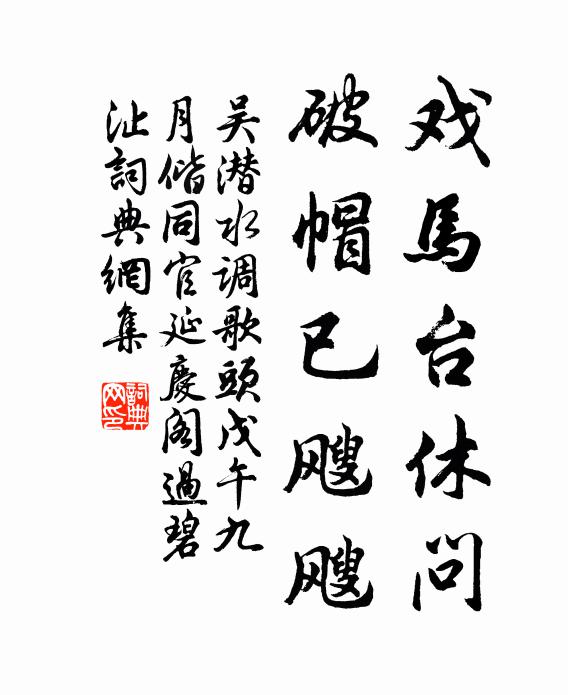 戏馬台休问
破帽已飕飕
吴潜水调歌頭戊午九
月偕同官延慶阁過碧
沚詞典網集
詞典
网印